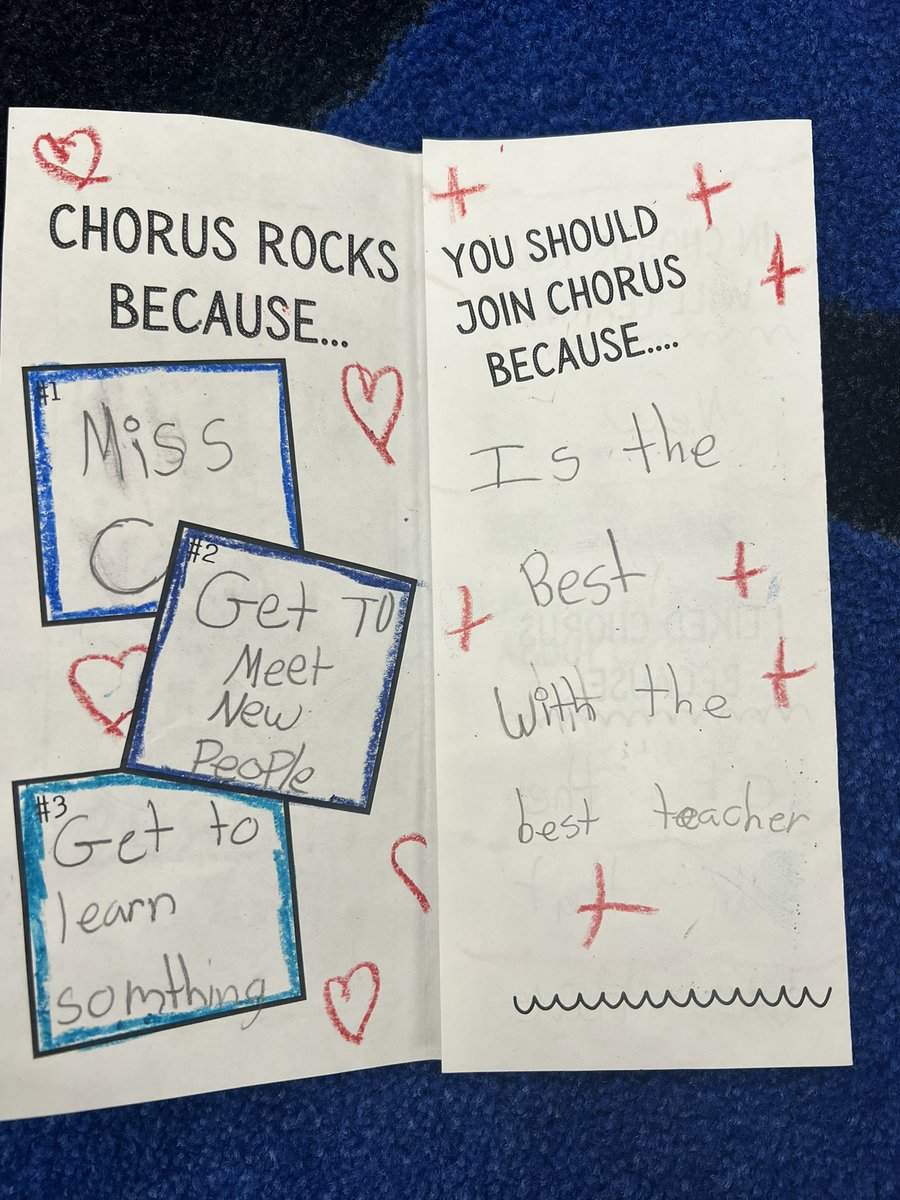 CHORUS ROCKS
BECAUSE...
#1
Miss
C
#2
Get TO
Meet
New
People
#3
Get to
learn
somthing
YOU SHOULD
JOIN CHORUS
BECAUSE....
Is the
Best
With the
best teacher